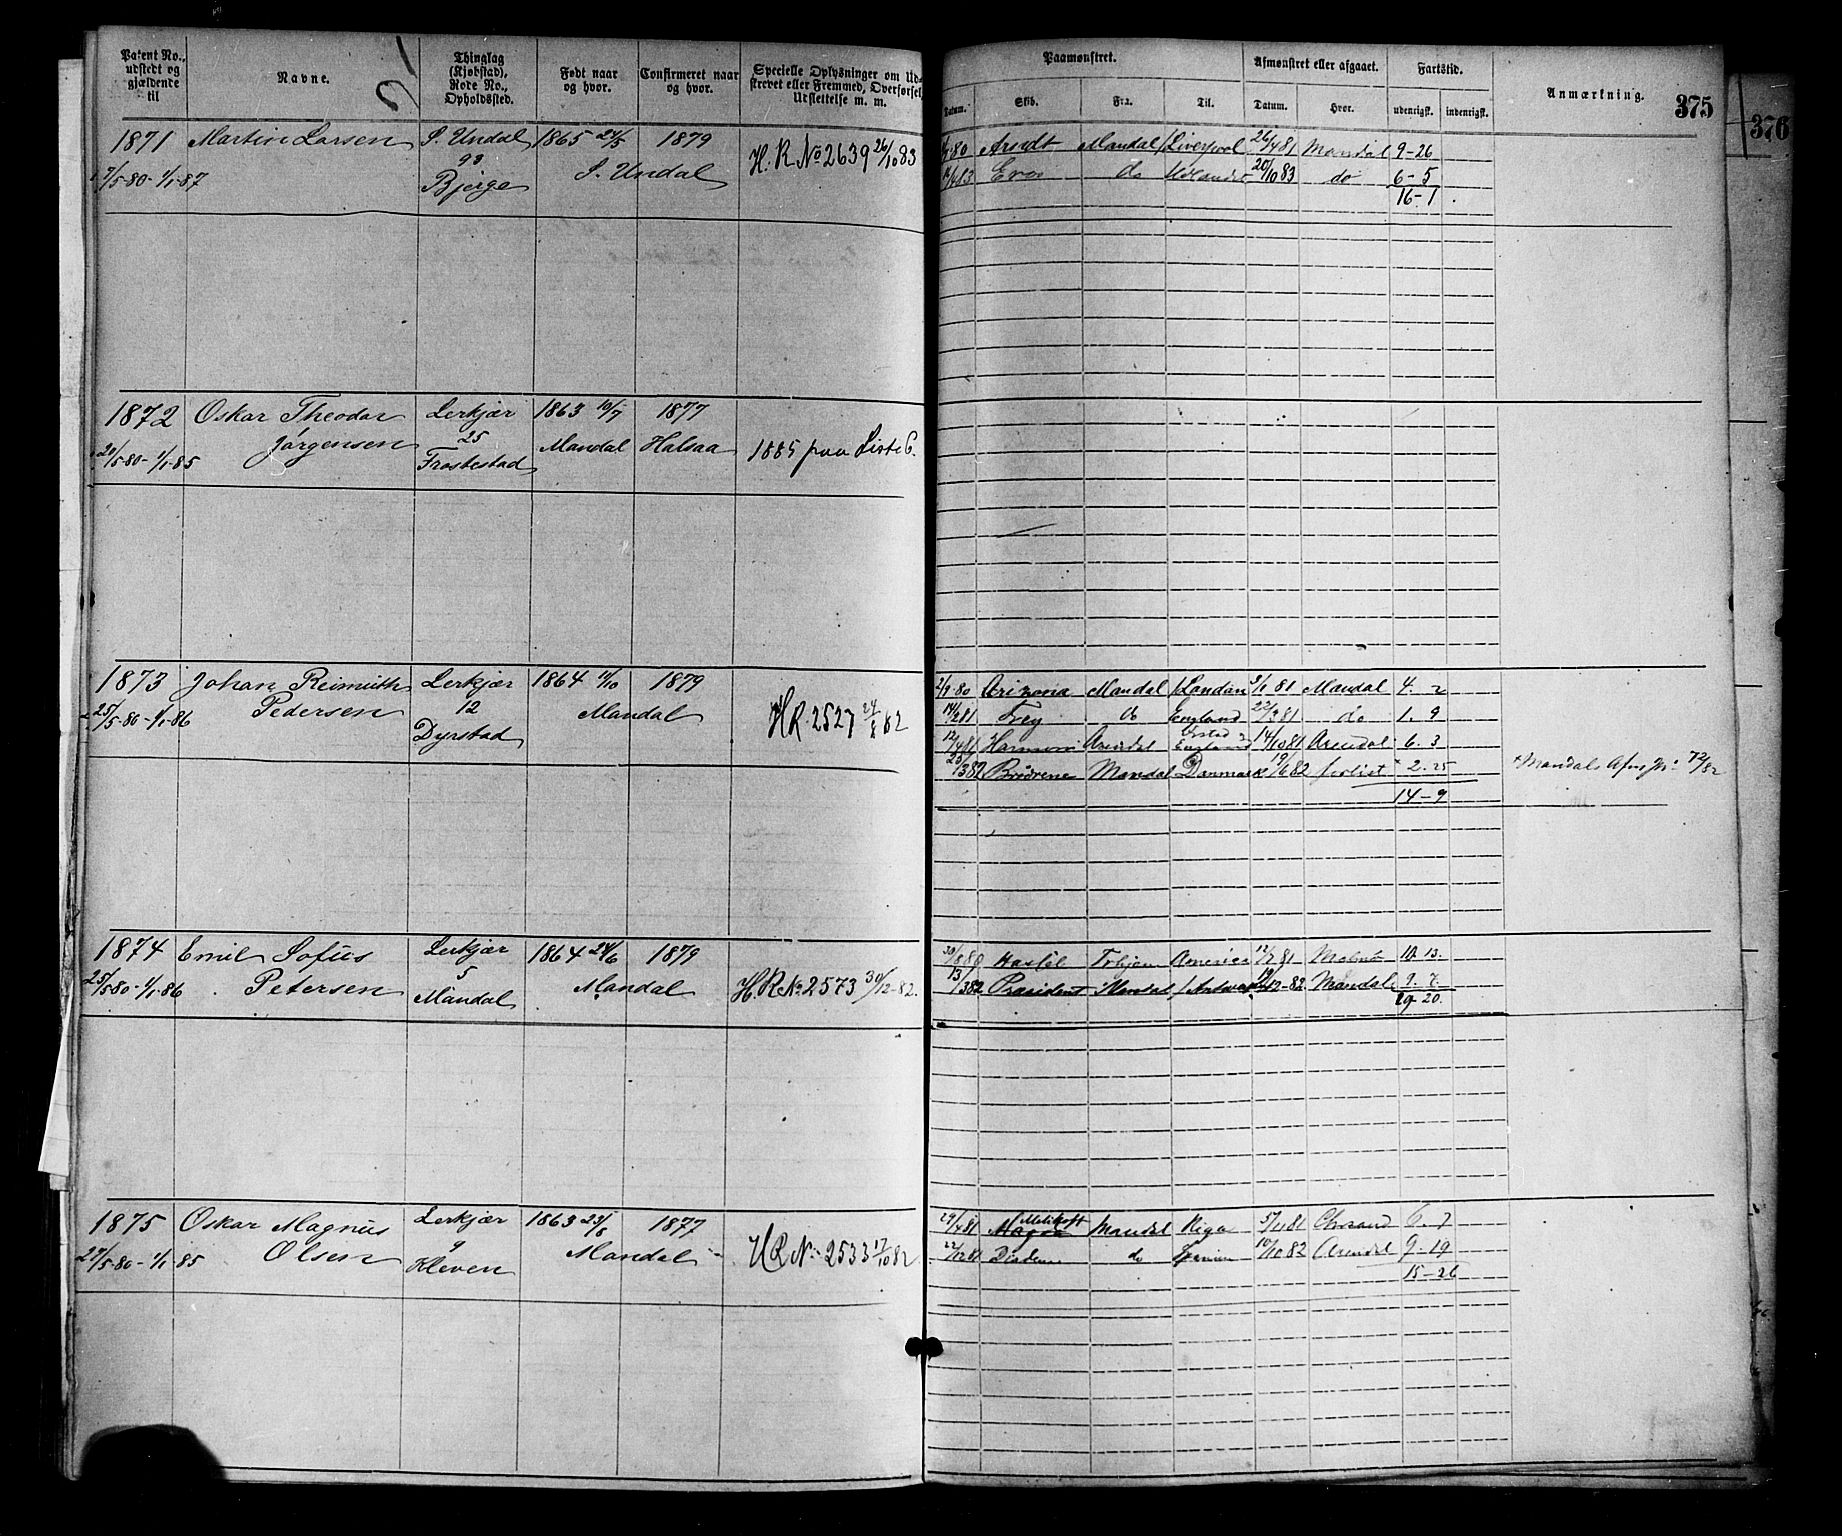 Patent No., udstedt og gjældende til
Navne.
Thinglag (Kjøbstad), Rode No., Opholdssted.
Født naar og hvor.
Confirmeret naar og hvor.
Specielle Oplysninger om Udstrevet eller Fremmed, Overførsel, Udslettelse m. m.
Paamønstret.
Datum. Skib. Fra. Til.
Afmønstret eller afgaaet.
Datum. Hvor.
Fartstid.
udenrigsk. indenrigsk.
Anmærkning.
375
376
1871 Martin Larsen S. Undal 1865 1879
7/5-80-1/1-87 93 S. Undal H. R No 2639 26/10 83
Bjerge
80 Arndt Mandal Liverpool 26/4 81 Mandal 9-26
83 Eros do Udlandet 20/10 83 do 6-5
16-1
1872 Oskar Theodor Lerkjær 1863 10/7 1877
Jørgensen 25 Mandal Halsaa 1885 paa Liste 6.
21/5-80-1/1-85 Frøstestad
1873 Johan Reimuth Lerkjær 1864 1879
Pedersen 12 Mandal HR. 2527 82
25/5-80-1/1-86 Dyrstad
80 Arizona Mandal London 3/1 81 Mandal 4. 2
14/2 81 Frey do England 22/3 81 do 1. 9
12/4 81 Harmoni Arendal England 14/10 81 Arendal 6. 3
25/3 82 Brødrene Mandal Danmark 19/6 82 forlist + 2. 25
14-9
+ Mandals 72/82
1874 Emil Sofus Lerkjær 1864 24/6 1879
Petersen 5 Mandal H. R No 2573 30/12-82.
25/5-80-1/1-86 Mandal
30/8 80 Amerika 12/7 81 10. 13.
13/3 82 Præsident Mandal 12-82 Mandal 9. 7.
19-20.
1875 Oskar Magnus Lerkjær 1863 23/8 1877
Olsen 9 Mandal HR No 2533 17/10 82
27/5-80-1/1-85 Kleven
29/4 81 Melikoff Mandal Riga 5/11 81 Chrsand 6. 7
22/12 81 Diadem do Spanien 10/10 82 Arendal 9-19
15-26